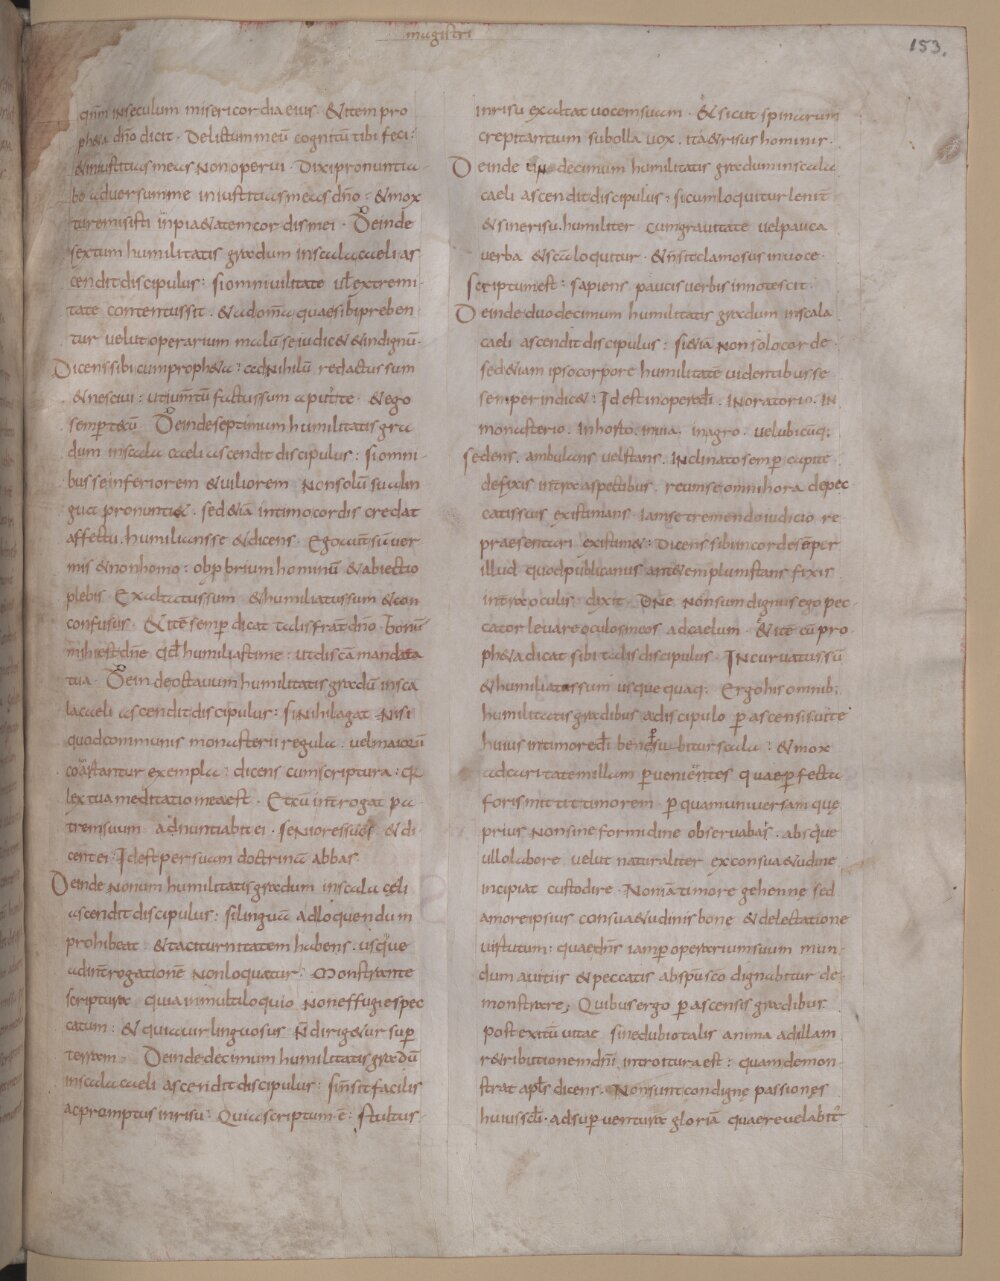 magistri
153.
qnm inseculum misericordia eius · & item pro
ph&a dño dicit · Delictum meū cognitū tibi feci :
& iniustitias meas non operui · Dixi pronuntia
bo aduersum me iniustitias meas dño · & mox
tu remisisti inpi&atem cordis mei · Deinde
sextum humilitatis gradum in scala caeli as
cendit discipulus : si omni uilitate uł extremi
tate contentus sit · & ad omā quae sibi preben
tur uelut operarium malū se iudic& & indignū ·
Dicens sibi cum proph&a : ad nihilū redactus sum
& nesciui : ut iumtū factus sum aput te · & ego
semp tecū Deinde septimum humilitatis gra
dum in scala caeli ascendit discipulus : si omni
bus se inferiorem & uiliorem non solū sua lin
gua pronunti& · sed & iā intimo cordis credat
affectu · humilians se & dicens · Ego aut sū uer
mis & non homo : obprbrium hominū & abiectio
plebis · Exaltatus sum & humiliatus sum & con
confusus · & itē semp dicat talis frat dño · bonū
mihi est dñe qd humiliasti me : ut discā mandata
tua · Deinde octauum humilitatis gradū in sca
la caeli ascendit discipulus : si nihil agat nisi
quod communis monasterii regula · uel maiorū
coartantur exempla : dicens cum scriptura : q
lex tua meditatio mea est · Et cū introgat pa
trem suum adnuntiabit ei · seniores suos & di
cent ei : Id est per suam doctrinā abbas ·
Deinde nonum humilitatis gradum in scala celi
ascendit discipulus : si linguā ad loquendum
prohibeat & taciturnitatem habens · usque
ad introgationē non loquatur · Monstrante
scriptura quia in multiloquio non effugies pec
catum : & quia uir linguosus ñ dirig&ur sup
terram · Deinde decimum humilitatis gradū
in scala caeli ascendit discipulus : si ñ sit facilis
ac promptus in risu : Quia scriptum ē : stultus
in risu exaltat uocem suam · & sicut spinarum
crepitantium sub olla uox · ita & risus hominis ·
Deinde undecimum humilitatis gradum in scala
caeli ascendit discipulus : si cum loquitur lenit
& sine risu · humiliter cum grauitate uel pauca
uerba & sca loquitur · & ñ sit clamosus in uoce ·
scriptum est : sapiens paucis uerbis innotescit ·
Deinde duodecimum humilitatis gradum in scala
caeli ascendit discipulus : si & iā non solo corde
sed & iam ipso corpore humilitatē uidentibus se
semper indic& : Id est in opere di · in oratorio · in
monasterio · in horto · in uia · in agro · uel ubicūq;
sedens · ambulans uel stans · inclinato semp capite
defixis in terra aspectibus · reum se omni hora de pec
catis suis existimans · iam se tremendo iudicio re
praesentari existim& : Dicens sibi in corde semper
illud quod publicanus ante templum stans fixis
in terra oculis dixit · Dñe non sum dignus ego pec
cator leuare oculos meos ad caelum · & itē cū pro
ph&a dicat sibi talis discipulus · Incuruatus sū
& humiliatus sum usque quaq; Ergo his omnib;
humilitatis gradibus a discipulo p ascensis uite
huius in timore di bene psu bitur scala : & mox
ad caritatem illam p uenientes quae p fecta
foris mittit timorem · p quam uniuersam quę
prius non sine formidine obseruabas · absque
ullo labore uelut naturaliter ex consu&udine
incipiat custodire · Non iā timore gehenne sed
amore ipsius consu&udinis bone & delectatione
uirtutum : quae dñs iam p operarium suum mun
dum a uitiis & peccatis ab spu sco dignabitur de
monstrare ; Quibus ergo p ascensis gradibus
post exitū uitae sine dubio talis anima ad illam
r&ributionem dñi introitura est : quam demon
strat apls dicens · Non sunt condignę passiones
huius scli · ad sup uentura gloriā quae reuelabit